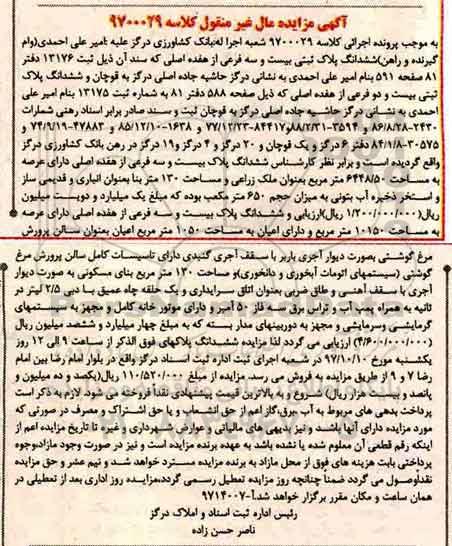 آگهی مزایده مال غیر منقول کلاسه ۹۷۰۰۰۲۹
به موجب پرونده اجرائی کلاسه ۹۷۰۰۰۲۹ شعبه اجرا له:بانک کشاورزی درگز علیه :امیر علی احمدی(وام
گیرنده و راهن)ششدانگ پلاک ثبتی بیست و سه فرعی از هفده اصلی که سند آن ذیل ثبت ۱۳۱۷۶ دفتر
۸۱ صفحه ۵۹۱ بنام امیر علی احمدی به نشانی درگز حاشیه جاده اصلی درگز به قوچان و ششدانگ پلاک
ثبتی بیست و دو فرعی از هفده اصلی که ذیل صفحه ۵۸۸ دفتر ۸۱ به شماره ثبت ۱۳۱۷۵ بنام امیر علی
احمدی به نشانی درگز حاشیه جاده اصلی درگز به قوچان ثبت و سند صادر برابر اسناد رهنی شمارات
۲۴۳۰-۸۶/۸/۲۸ و ۳۵۱۴-۸۸/۲/۳۱و۸۴۴۱۷-۷۷/۱۲/۲۳ و ۱۶۳۸-۸۵/۱۲/۱۰ و ۴۷۸۸۳-۷۴/۹/۱۹ و
۳۰۵۷۵-۸۴/۱/۸ دفتر ۶ درگز و یک قوچان و ۲۰ درگز و ۴ درگز و۱۹ درگز در رهن بانک کشاورزی درگز
واقع گردیده است و برابر نظر کارشناس ششدانگ پلاک بیست و سه فرعی از هفده اصلی دارای عرصه
به مساحت ۶۴۴۸/۵۰ متر مربع بعنوان ملک زراعی و مساحت ۱۳۰ متر بنا بعنوان انباری و قدیمی ساز
و استخر ذخیره آب بتونی به میزان حجم ۶۵۰ متر مکعب بوده که مبلغ یک میلیارد و دویست میلیون
ریال(۱/۲۰۰/۰۰۰/۰۰۰ ریال)ارزیابی و ششدانگ پلاک بیست و دو فرعی از هفده اصلی دارای عرصه
به مساحت ۱۰۱۵۰ متر مربع و دارای اعیان به مساحت ۱۰۵۰ متر مربع اعیان بعنوان سالن پرورش
مرغ گوشتی بصورت دیوار آجری باربر با سقف آجری گنبدی دارای تاسیسات کامل سالن پرورش مرغ
گوشتی (سیستمهای اتومات آبخوری و دانخوری)و مساحت ۱۳۰ متر مربع بنای مسکونی به صورت دیوار
آجری با سقف آهنی و طاق ضربی بعنوان اتاق سرایداری و یک حلقه چاه عمیق با دبی ۲/۵ لیتر در
ثانیه به همراه پمپ آب و تراس برق سه فاز ۵۰ آمپر و دارای موتور خانه کامل و مجهز به سیستمهای
گرمایشی وسرمایشی و مجهز به دوربینهای مدار بسته که به مبلغ چهار میلیارد و ششصد میلیون ریال
(۴/۶۰۰/۰۰۰/۰۰۰) ارزیابی می گردد لذا مزایده ششدانگ پلاکهای فوق الذکر از ساعت ۹ الی ۱۲ روز
یکشنبه مورخ ۹۷/۱۰/۱۰ در شعبه اجرای ثبت اداره ثبت اسناد درگز واقع در بلوار امام رضا بین امام
رضا ۷ و ۹ از طریق مزایده به فروش می رسد. مزایده از مبلغ ۱۱۰/۵۲۰/۰۰۰ ریال(یکصد و ده میلیون و
پانصد و بیست هزار ریال) شروع و به بالاترین قیمت پیشنهادی نقدا فروخته می شود. لازم به ذکر است
پرداخت بدهی های مربوط به آب ،برق،گاز اعم از حق انشعاب و یا حق اشتراک و مصرف در صورتی که
مورد مزایده دارای آنها باشد و نیز بدیهی های مالیاتی و عوارض شهرداری و غیره تا تاریخ مزایده اعم از
اینکه رقم قطعی آن معلوم شده یا نشده باشد به عهده برنده مزایده است و نیز در صورت وجود مازاد،وجوه
پرداختی بابت هزینه های فوق از محل مازاد به برنده مزایده مسترد خواهد شد و نیم عشر و حق مزایده
نقداًوصول می گردد ضمناً چنانچه روز مزایده تعطیل رسمی گردد،مزایده روز اداری بعد از تعطیلی در
همان ساعت و مکان مقرر برگزار خواهد شد.آ-۹۷۱۴۰۰۷
رئیس اداره ثبت اسناد و املاک درگز
ناصر حسن زاده